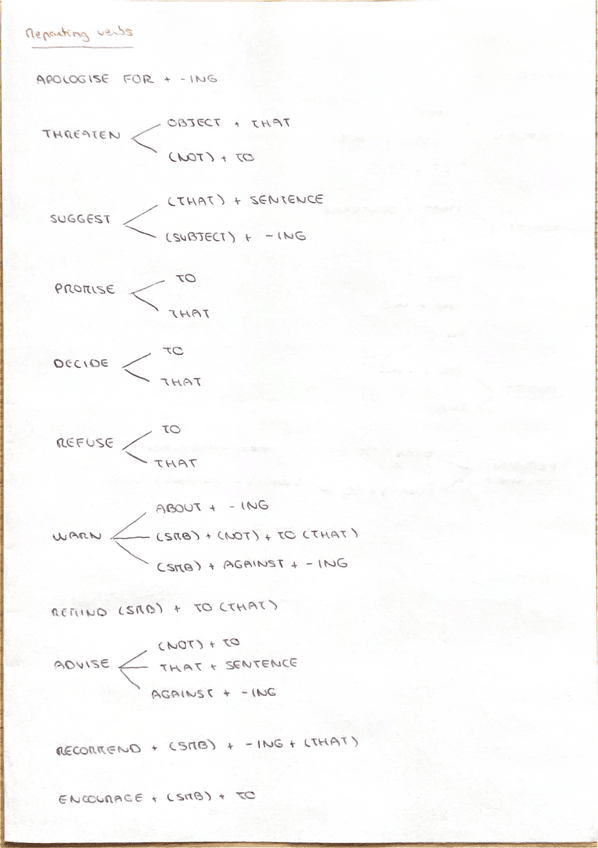 Reporting verbs
APOLOGISE FOR + -ING
OBJECT + THAT
THREATEN
(NOT) + TO
(THAT) + SENTENCE
SUGGEST
(SUBJECT) + -ING
TO
PROMISE
THAT
TO
DECIDE
THAT
TO
REFUSE
THAT
ABOUT + -ING
WARN (SMB) + (NOT) + TO (THAT)
(SMB) + AGAINST + -ING
REMIND (SMB) + TO (THAT)
(NOT) + TO
ADVISE THAT + SENTENCE
AGAINST + -ING
RECOMMEND + (SMB) + -ING + (THAT)
ENCOURAGE + (SMB) + TO